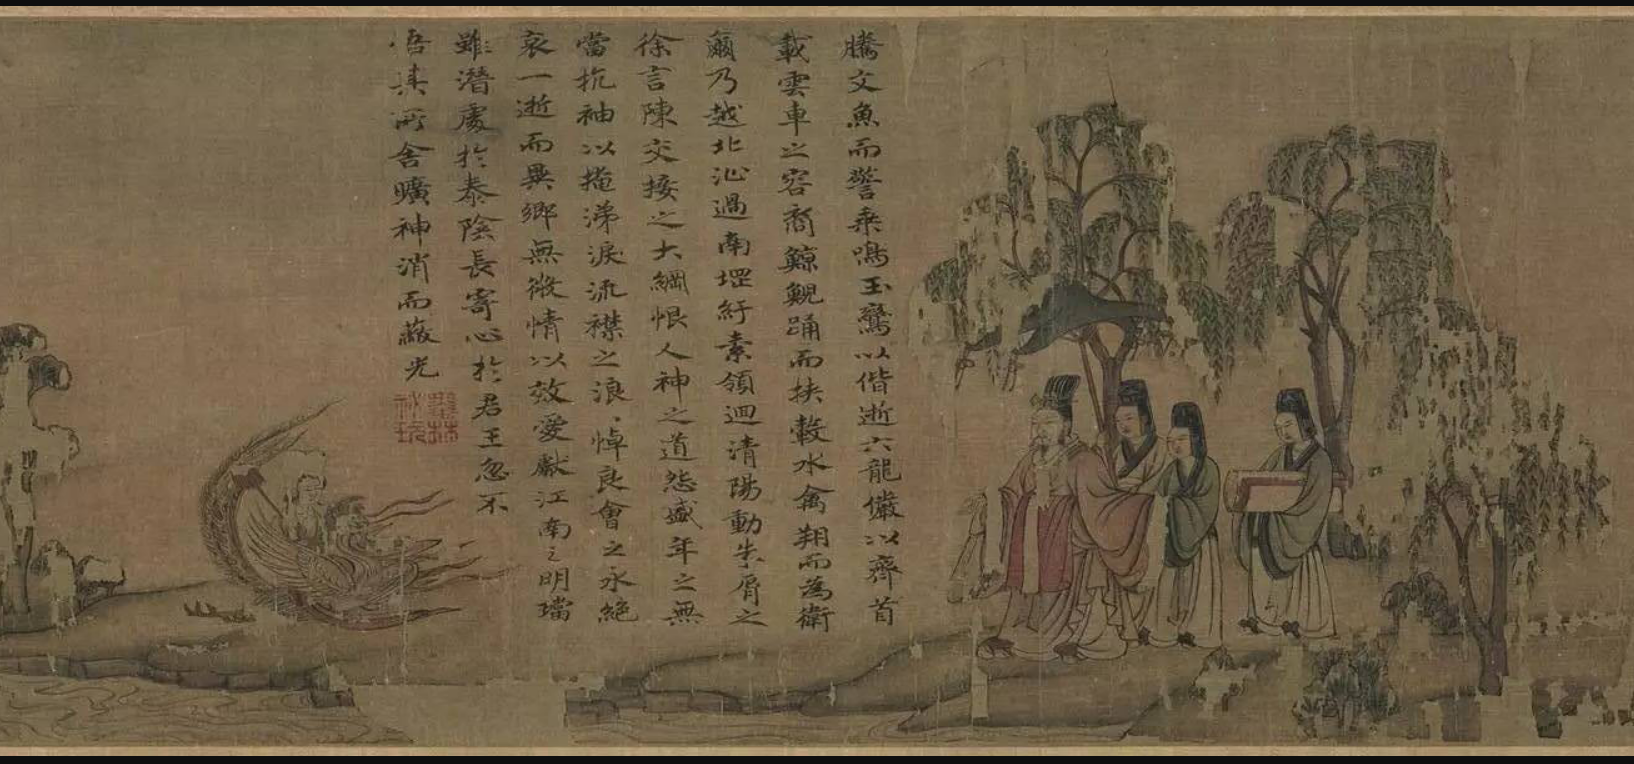 騰文魚而警乘鳴玉鸞以偕逝六龍儼以齊首
載雲車之容裔鯨鯢踊而挾轂水禽翔而為衛
爾乃越北沚過南堽紆素領迴清陽動朱脣之
徐言陳交接之大綱恨人神之道怨盛年之無
當抗袖以掩涕淚流襟之浪、悼良會之永絕
哀一逝而異鄉無微情以效愛獻江南之明璫
雖潛處於泰陰長寄心於君王忽不
悟其所舍曠神消而蔽光
蕉林
秘玩